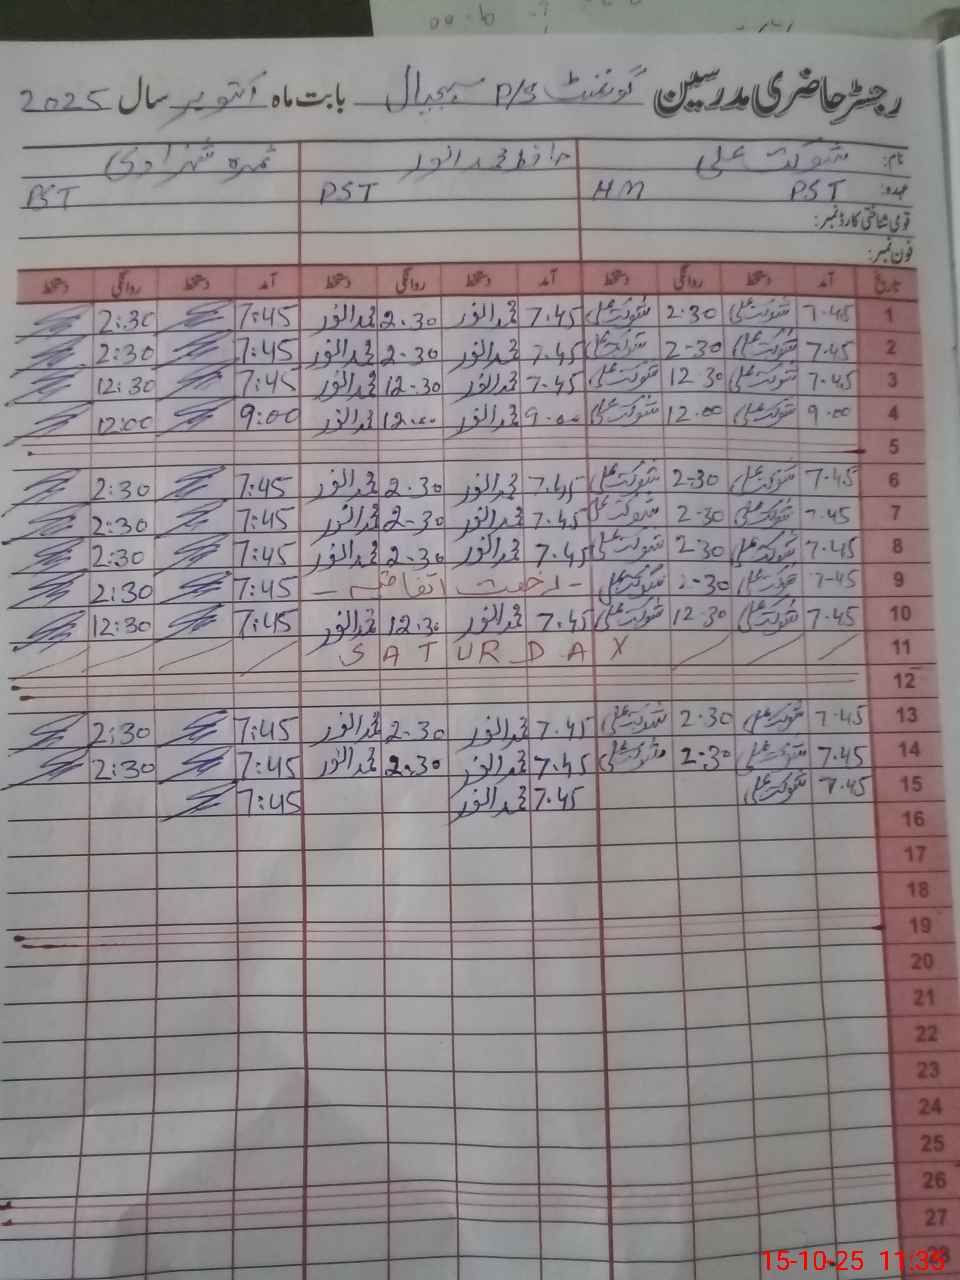 رجسٹر حاضری مدرسین گورنمنٹ P/S سبحیال بابت ماہ اکتوبر سال 2025
نام: شوکت علی حافظ محمد انور ثمرہ شہزادی
عہدہ: PST HM PST PST
قومی شناختی کارڈ نمبر:
فون نمبر:
تاریخ آمد دستخط روانگی دستخط آمد دستخط روانگی دستخط آمد دستخط روانگی دستخط
1 7.45 شوکت علی 2.30 شوکت علی 7.45 محمد انور 2.30 محمد انور 7:45 2:30
2 7.45 شوکت علی 2-30 شوکت علی 7.45 محمد انور 2-30 محمد انور 7:45 2:30
3 7.45 شوکت علی 12 30 شوکت علی 7.45 محمد انور 12-30 محمد انور 7:45 12:30
4 9.00 شوکت علی 12.00 شوکت علی 9.00 محمد انور 12.00 محمد انور 9:00 12:00
5
6 7.45 شوکت علی 2-30 شوکت علی 7.45 محمد انور 2.30 محمد انور 7:45 2:30
7 7.45 شوکت علی 2-30 شوکت علی 7.45 محمد انور 2-30 محمد انور 7:45 2:30
8 7.45 شوکت علی 2.30 شوکت علی 7.45 محمد انور 2.30 محمد انور 7:45 2:30
9 7-45 شوکت علی 2-30 شوکت علی - رخصت اتفاقیہ - 7:45 2:30
10 7.45 شوکت علی 12.30 شوکت علی 7.45 محمد انور 12.30 محمد انور 7:45 12:30
11 S A T U R D A Y
12
13 7-45 شوکت علی 2.30 شوکت علی 7.45 محمد انور 2.30 محمد انور 7:45 2:30
14 7.45 شوکت علی 2.30 شوکت علی 7.45 محمد انور 2.30 محمد انور 7:45 2:30
15 7.45 شوکت علی 7.45 محمد انور 7:45
16
17
18
19
20
21
22
23
24
25
26
27
28
15-10-25 11:35